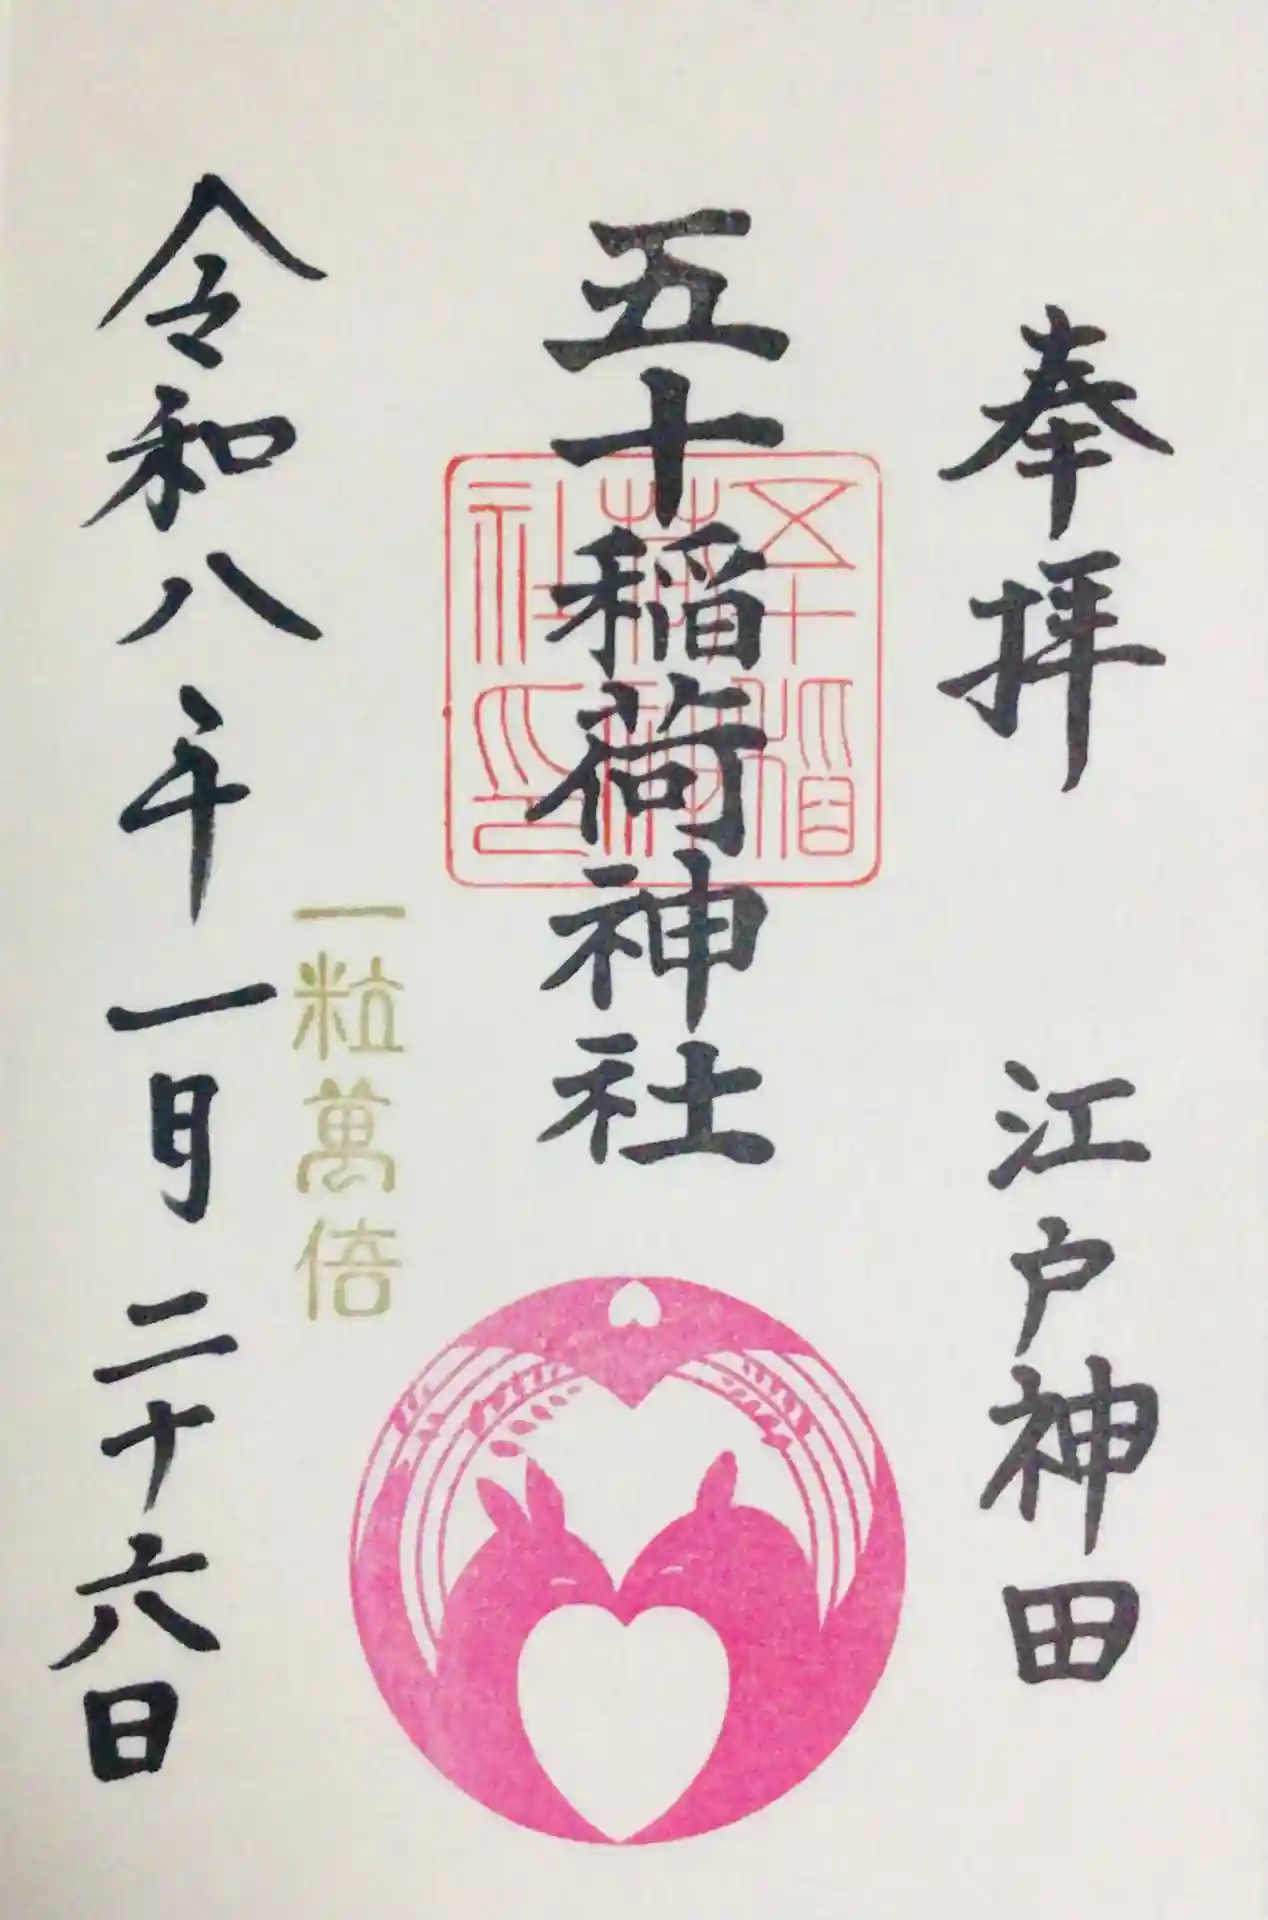 奉拝
江戸神田
五十稲荷神社
五十稲
荷神
社印
一粒萬倍
令和八年一月二十六日